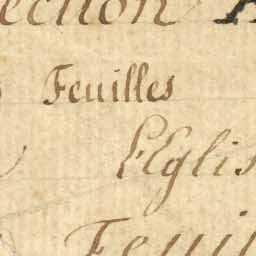 ection A
Feuilles
L'Eglis
Feuil